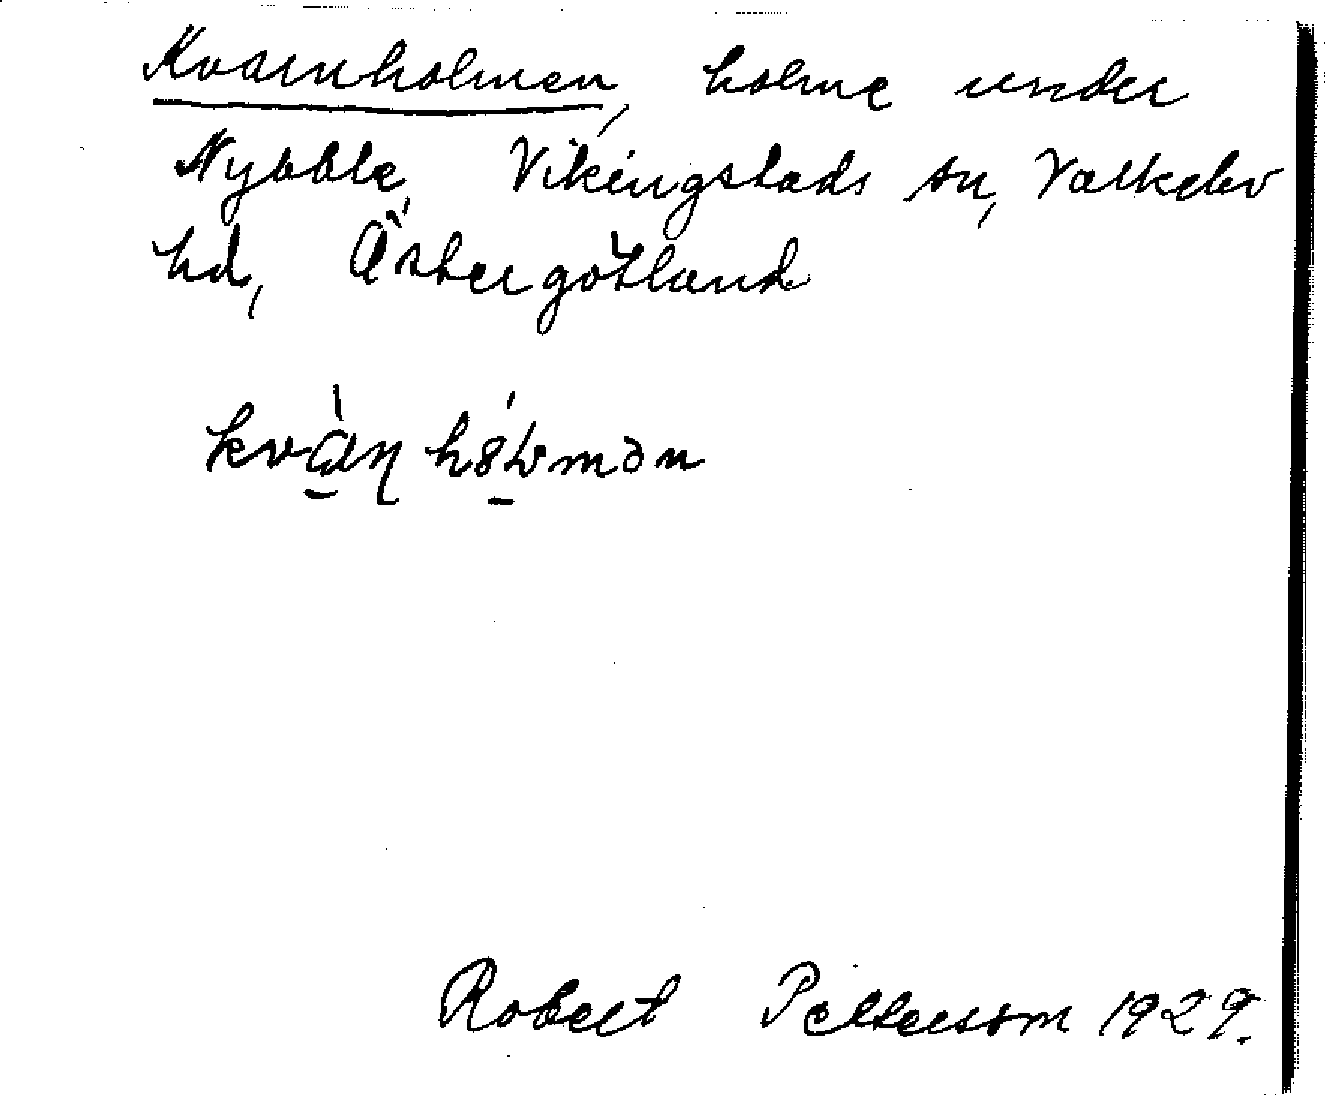 Kvarnholmen, holme under
Nybble, Vikingstads sn, Valkebo
hd, Östergötland
Robert Pettersson 1929.